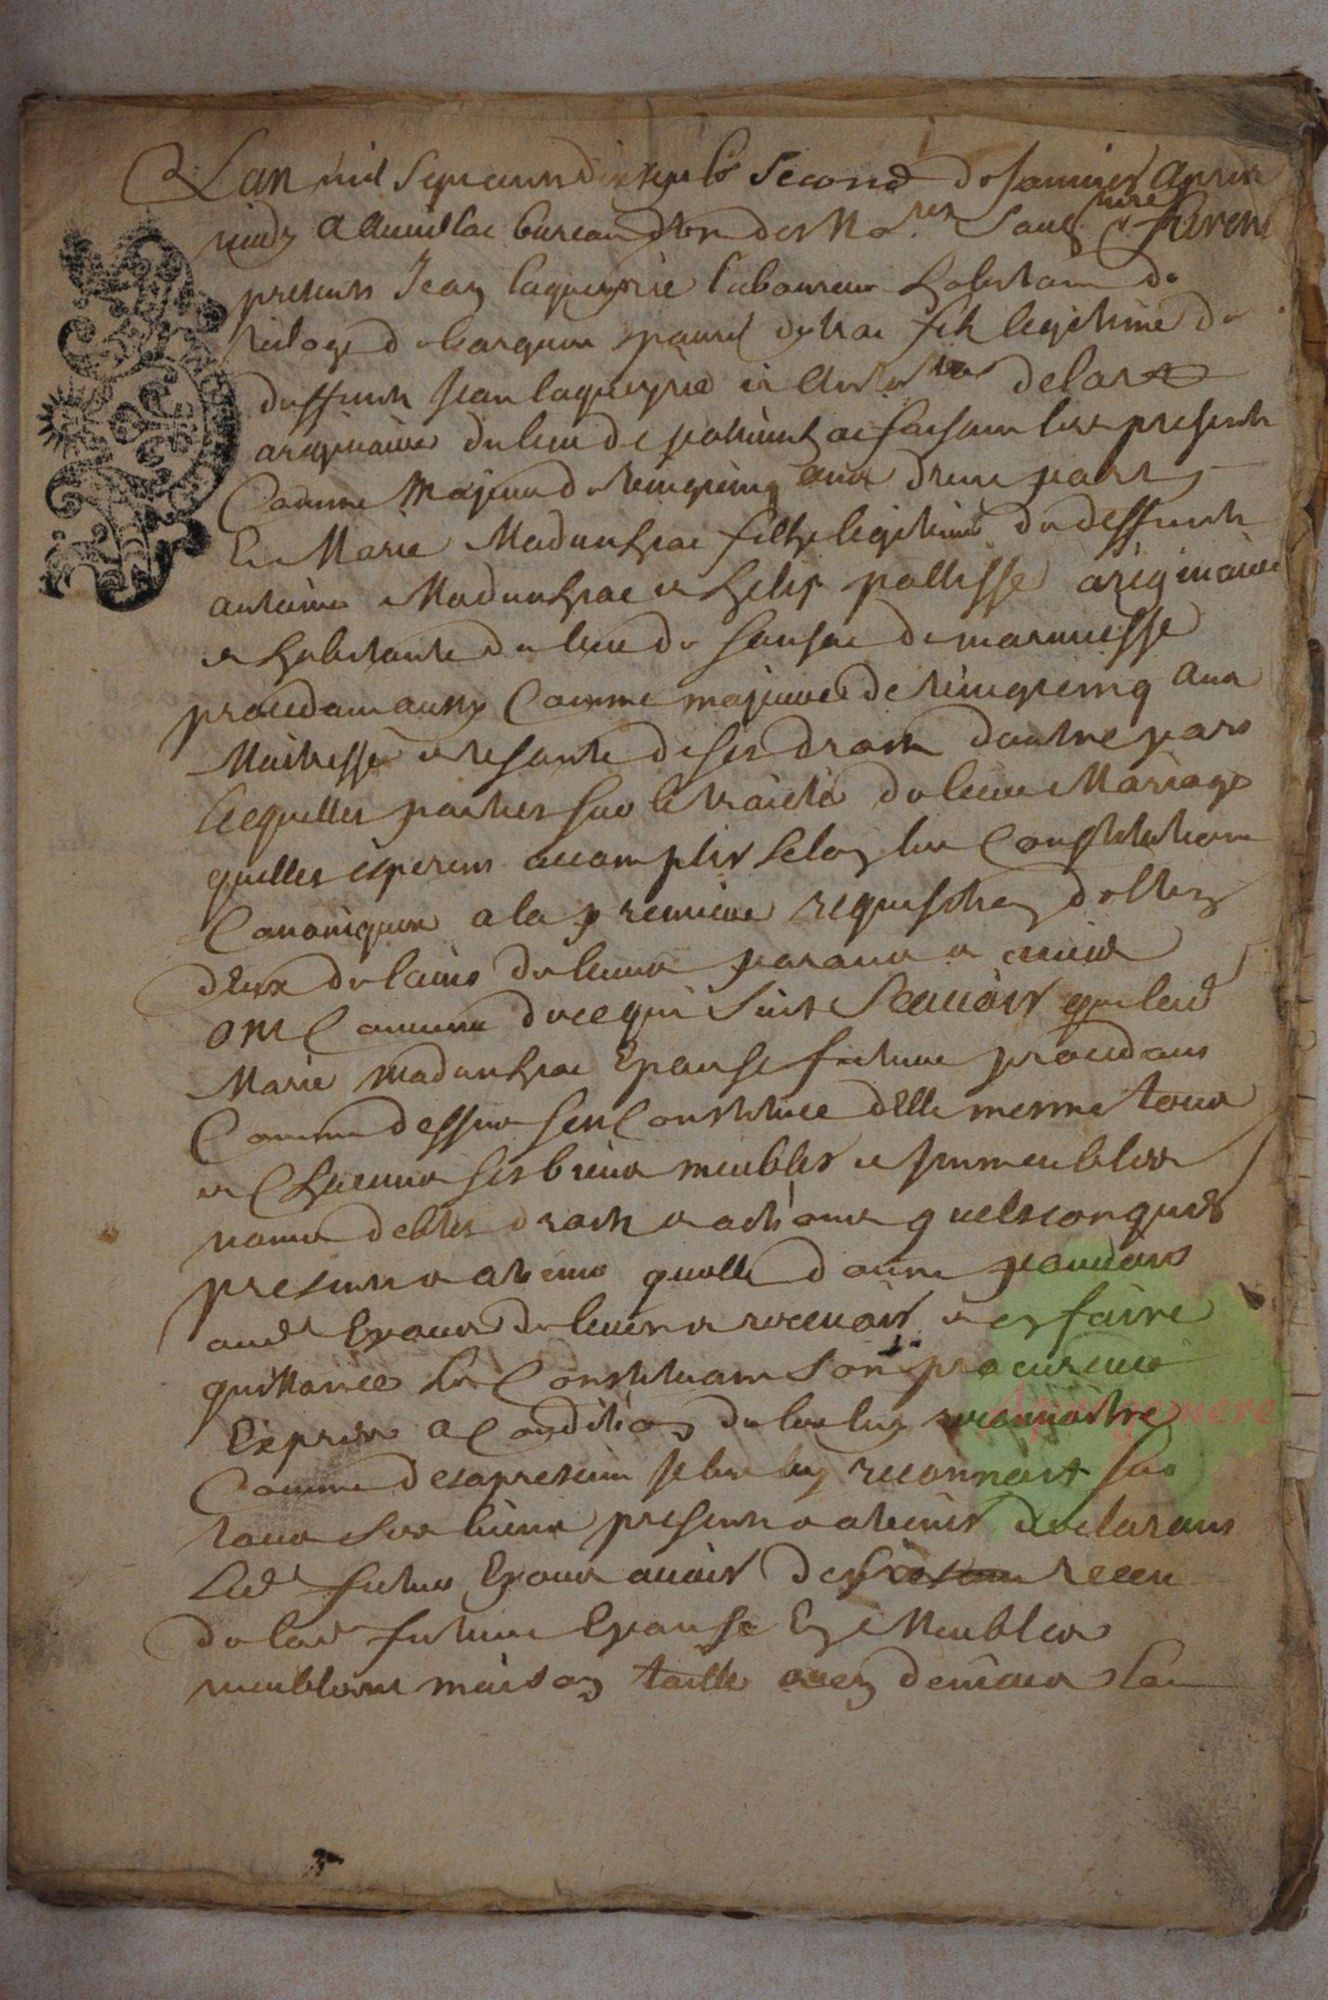 Lan mil sept cens dix sept le second de Janvier apres
midy a Aurillac bureau dun des No.res Sous.nes furent
presents Jean Laqueyrie laboureur habitant du
vilage de parroisse dytrac fils legitime de
deffunts Jean laqueyrie et delort
originaire du lieu de faisant les presentes
Comme Majeur de vingt cinq ans dune part
Et Marie Madunhac filhe legitime de deffunts
antoine Madunhac et helis pallisse originaire
et habitante du lieu de Sansac de marmiesse
procedant aussy Comme majeure de vingt cinq ans
Maitresse et usante de ses droits dautre part
lesquelles parties sur le traicte de leur Mariage
quelles esperent accomplir selon les Constitutions
Canoniques a la premiere requisition delles
deux de ladvis de leurs parans et amis
ont Convenu de ce qui suit Scavoir que lad
Marie madunhac Epouse future procedant
Comme dessus sest Constituee delle mesme tous
et Chacuns ses biens meubles et Immeubles
noms debtes droits et actions quelsconques
presents et avenir quelle donne pouvoir
aud Epoux de lever et recevoir et en faire
quittance le Constituant son procureur
Expres a Condition de les luy reconnoitre
Comme des a present il les luy reconnoit sur
tous ses biens presents et avenir declarant
Led futur Epoux avoir recu
de lad future Epouse En Meubles
meublant maison taille avec
Apongemere